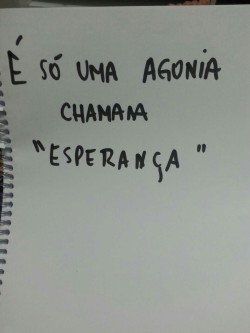 É SÓ UMA AGONIA
CHAMADA
"ESPERANÇA"